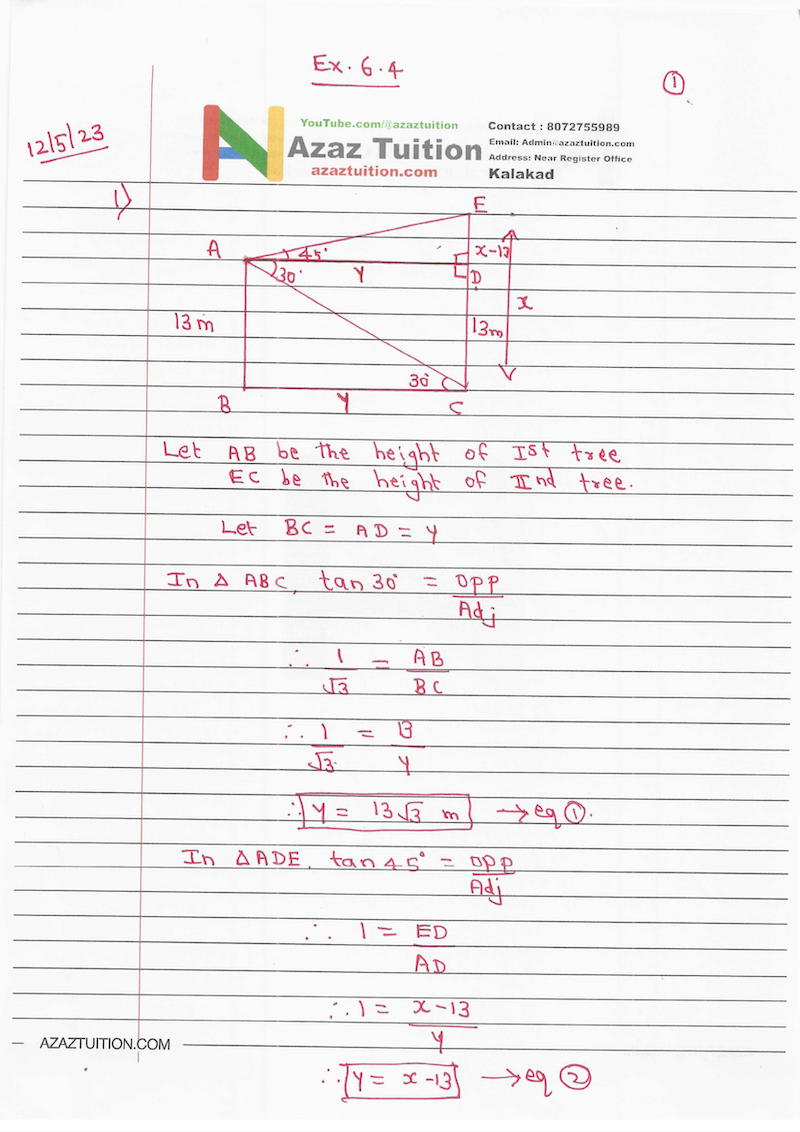 Ex. 6.4
1
12/5/23
YouTube.com/@azaztuition
Azaz Tuition
azaztuition.com
Contact : 8072755989
Email: Admin@azaztuition.com
Address: Near Register Office
Kalakad
1)
E
A
45°
x-13
30°
Y
D
x
13m
13m
30°
B
Y
C
Let AB be the height of Ist tree
EC be the height of IInd tree.
Let BC = AD = Y
In Δ ABC, tan 30° = opp/Adj
∴ 1/√3 = AB/BC
∴ 1/√3 = 13/Y
∴ Y = 13√3 m → eq ①.
In ΔADE, tan 45° = opp/Adj
∴ 1 = ED/AD
∴ 1 = x-13/Y
AZAZTUITION.COM
∴ Y = x-13 → eq ②